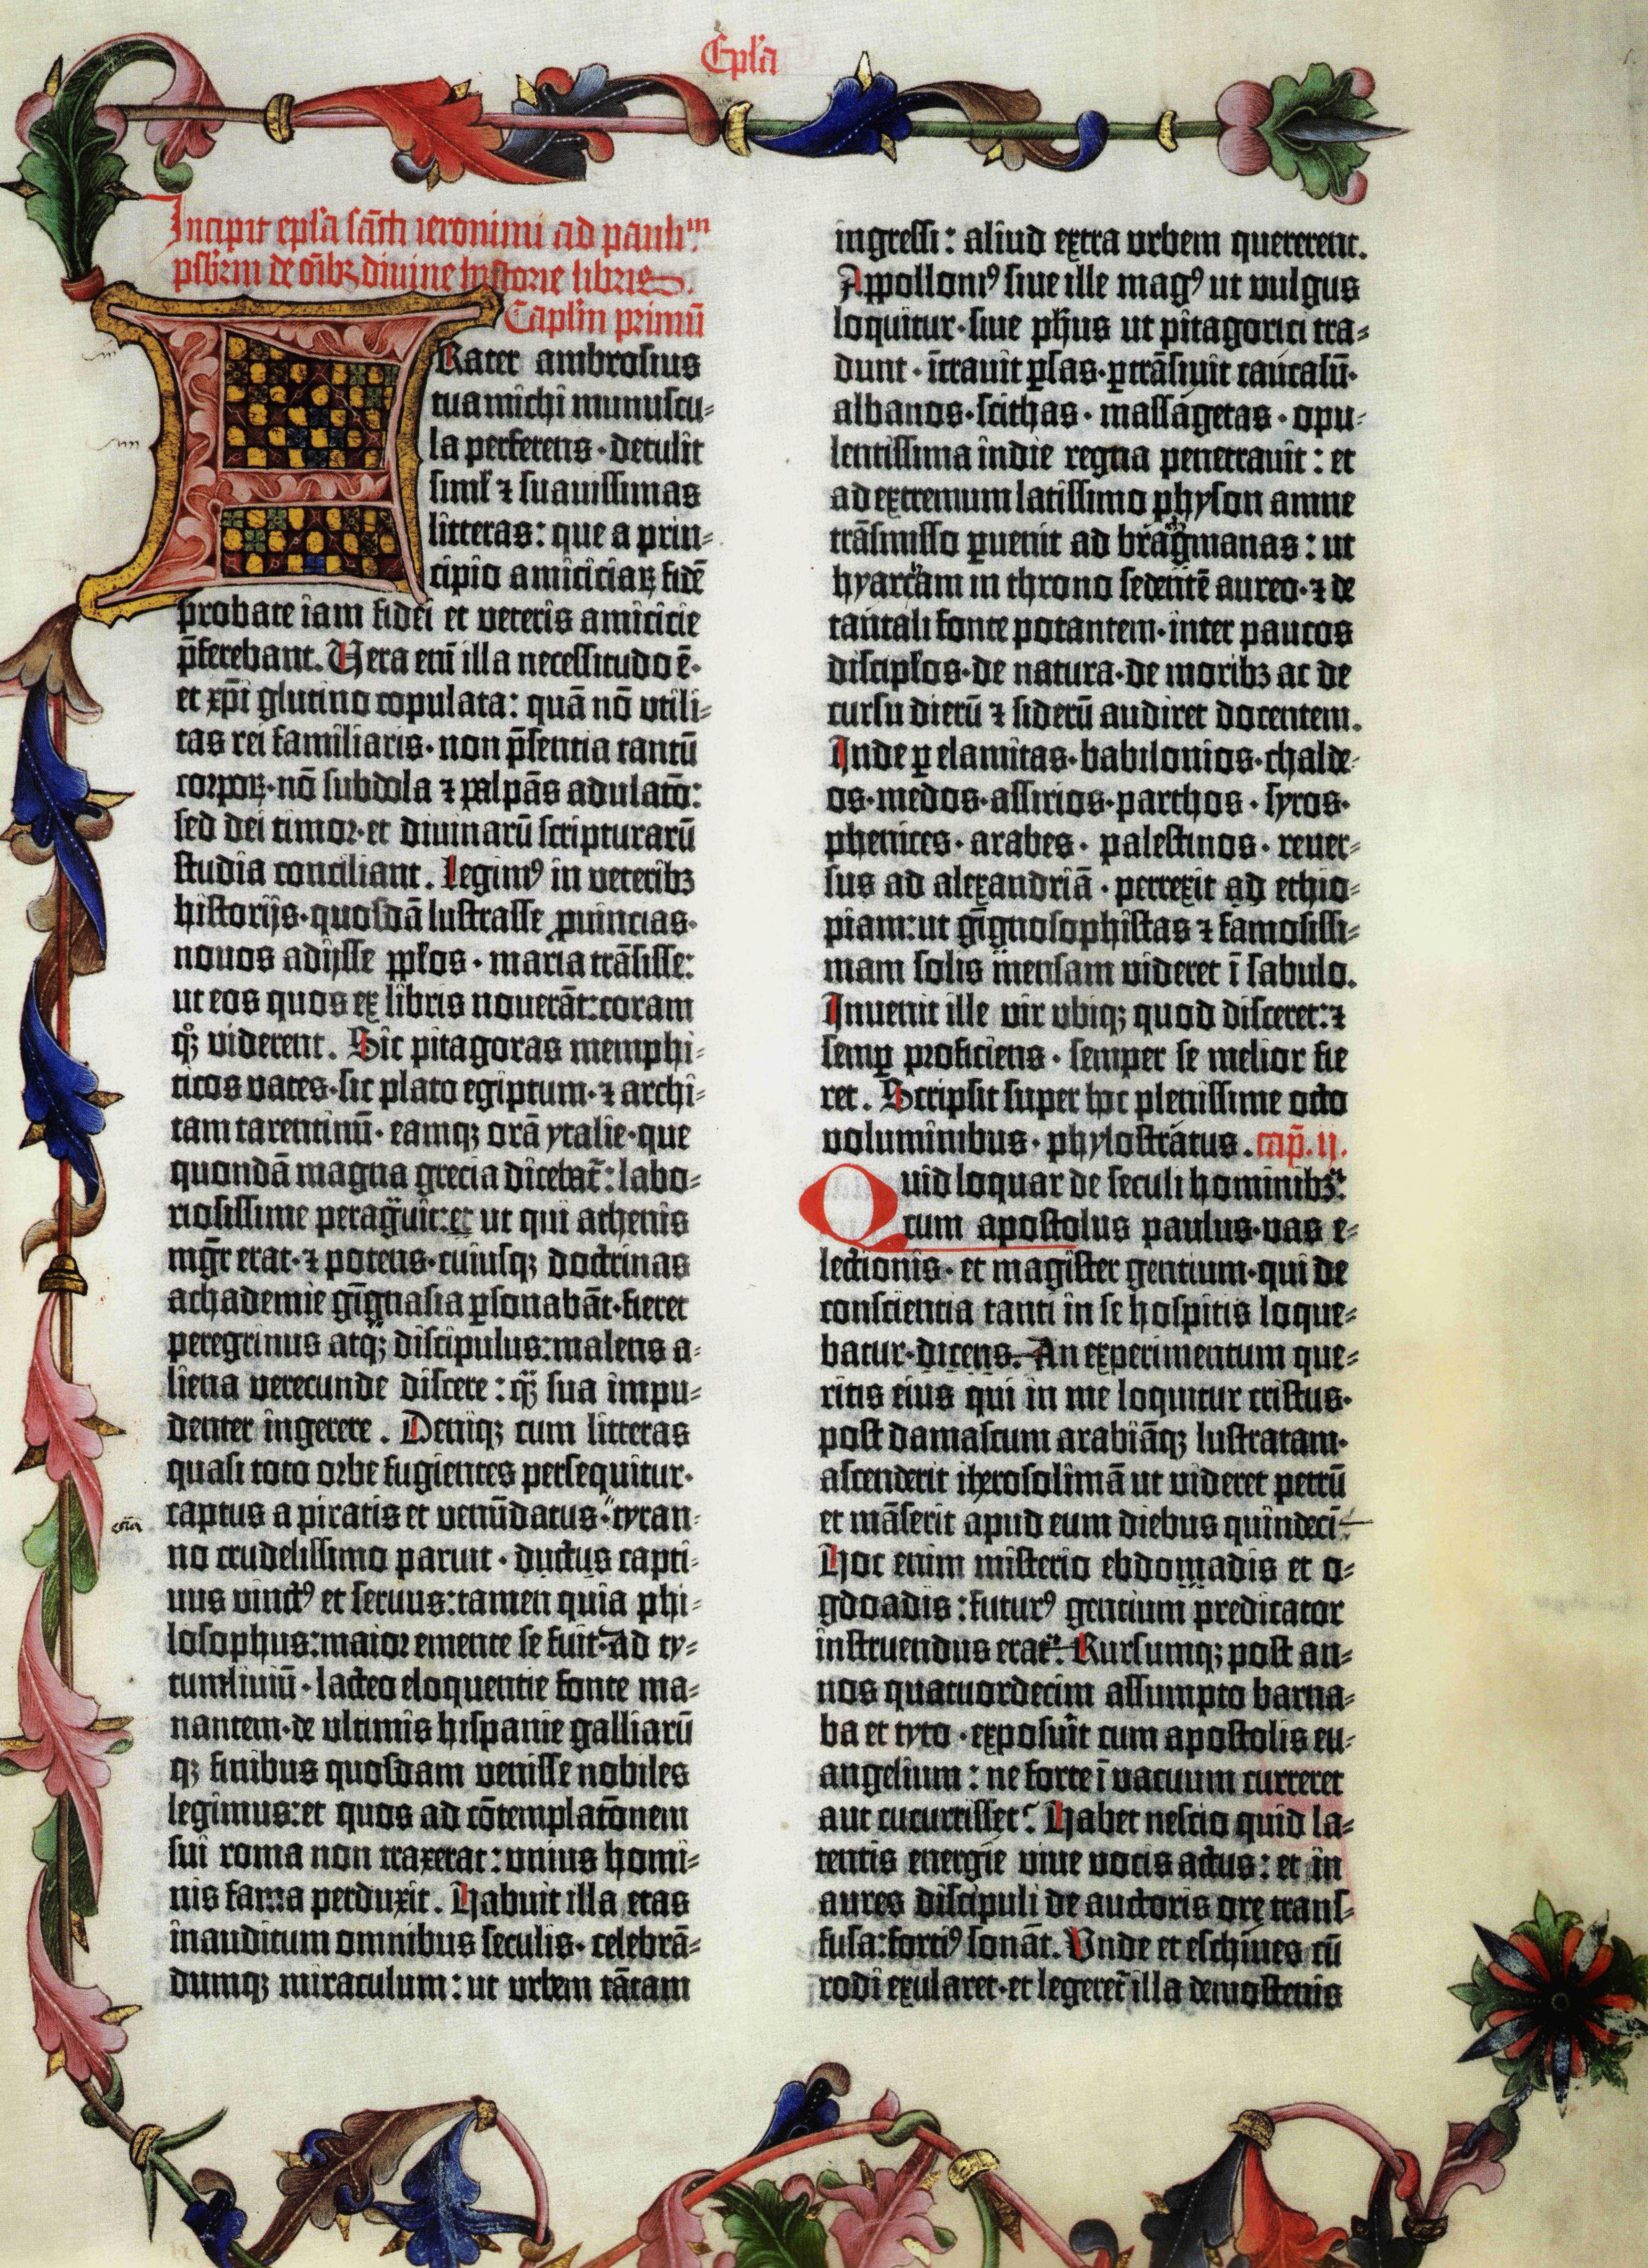 Ep̄la
Incipit epl̄a sāct̄i ieronimi ad pauli᷈ᵐ
p̄sb̄rm de oībꝫ divine historie libris.
Capl̄m primū
Rater ambrosius
tua michi munuscu⸗
la perferens · detulit
siml̄ ⁊ suauissimas
litteras: que a prin⸗
cipio amiciciaꝝ fidē
probate iam fidei et veteris amicicie
p̄ferebant. Vera enī illa necessitudo ē·
et xp̄i glutino copulata: quā nō utili⸗
tas rei familiaris · non p̄sentia tantū
corpoꝝ · nō subdola ⁊ palpās adulatō:
sed dei timor · et diuinarū scripturarū
studia conciliant. Legimꝰ in veteribꝫ
historijs · quosdā lustrasse ꝓuincias·
nouos adijsse ppl̄os · maria trāsisse:
ut eos quos ex libris nouerāt: coram
qͦꝫ viderent. Sic pitagoras memphi⸗
ticos vates · sic plato egiptum · ⁊ archi⸗
tam tarentinū · eamqꝫ orā ytalie · que
quondā magna grecia dicebat᷑: labo⸗
riosissime peragͣuit: et ut qui athenis
mgr̄ erat · ⁊ potens · cuiusqꝫ doctrinas
achademie gi̅gnasia ꝑsonabāt · fieret
peregrinus atqꝫ discipulus: malens a⸗
liena verecunde discere: qͣꝫ sua impu⸗
denter ingerere. Deniqꝫ cum litteras
quasi toto orbe fugientes persequitur·
captus a piratis et venūdatus · tyran⸗
no crudelissimo paruit · ductus capti⸗
uus vinctꝰ et seruus: tamen quia phi⸗
losophus: maior emente se fuit · ad ty⸗
tumliuiū · lacteo eloquentie fonte ma⸗
nantem · de ultimis hispanie galliarū
qꝫ finibus quosdam venisse nobiles
legimus: et quos ad cōtemplatōnem
sui roma non traxerat: unius homi⸗
nis fama perduxit. Habuit illa etas
inauditum omnibus seculis · celebrā⸗
dumqꝫ miraculum: ut urbem tātam
ingressi: aliud extra urbem quererent.
Appolloniꝰ siue ille magꝰ ut vulgus
loquitur · siue ph̄us ut pitagorici tra⸗
dunt · ītrauit ꝑsas · ꝑtrāsiuit caucasū·
albanos · scithas · massagetas · opu⸗
lentissima indie regna penetrauit: et
ad extremum latissimo physon amne
trāsmisso ꝑuenit ad bragmanas: ut
hyarcam in throno sedentē aureo · ⁊ de
tantali fonte potantem · inter paucos
discipl̄os · de natura · de moribꝫ ac de
cursu dierū ⁊ siderū audiret docentem.
Inde ꝑ elamitas · babilonios · chalde⸗
os · medos · assirios · parthos · syros·
phenices · arabes · palestinos · reuer⸗
sus ad alexandriā · perrexit ad ethio⸗
piam: ut gi̅gnosophistas ⁊ famosissi⸗
mam solis mensam videret ī sabulo.
Inuenit ille vir ubiqꝫ quod disceret: ⁊
semꝑ proficiens · semper se melior fie
ret. Scripsit super hoc plenissime octo
voluminibus · phylostratus. cap̄. ij.
Quid loquar de seculi hominibꝫ:
cum apostolus paulus · vas e⸗
lectionis · et magister gentium · qui de
conscientia tanti in se hospitis loque⸗
batur · dicens. An experimentum que⸗
ritis eius qui in me loquitur cristus·
post damascum arabiāqꝫ lustratam·
ascenderit iherosolimā ut videret petrū
et māserit apud eum diebus quindeci̅.
Hoc enim misterio ebdomadis et o⸗
gdoadis: futurꝰ gentium predicator
instruendus erat. Rursumqꝫ post an⸗
nos quatuordecim assumpto barna⸗
ba et tyto · exposuit cum apostolis eu⸗
angelium: ne forte ī vacuum curreret
aut cucurrisset. Habet nescio quid la⸗
tentis energie viue vocis actus: et in
aures discipuli de auctoris ore trans⸗
fusa: fortiꝰ sonāt. Unde et eschines cū
rodi exularet · et legeret᷑ illa demostenis